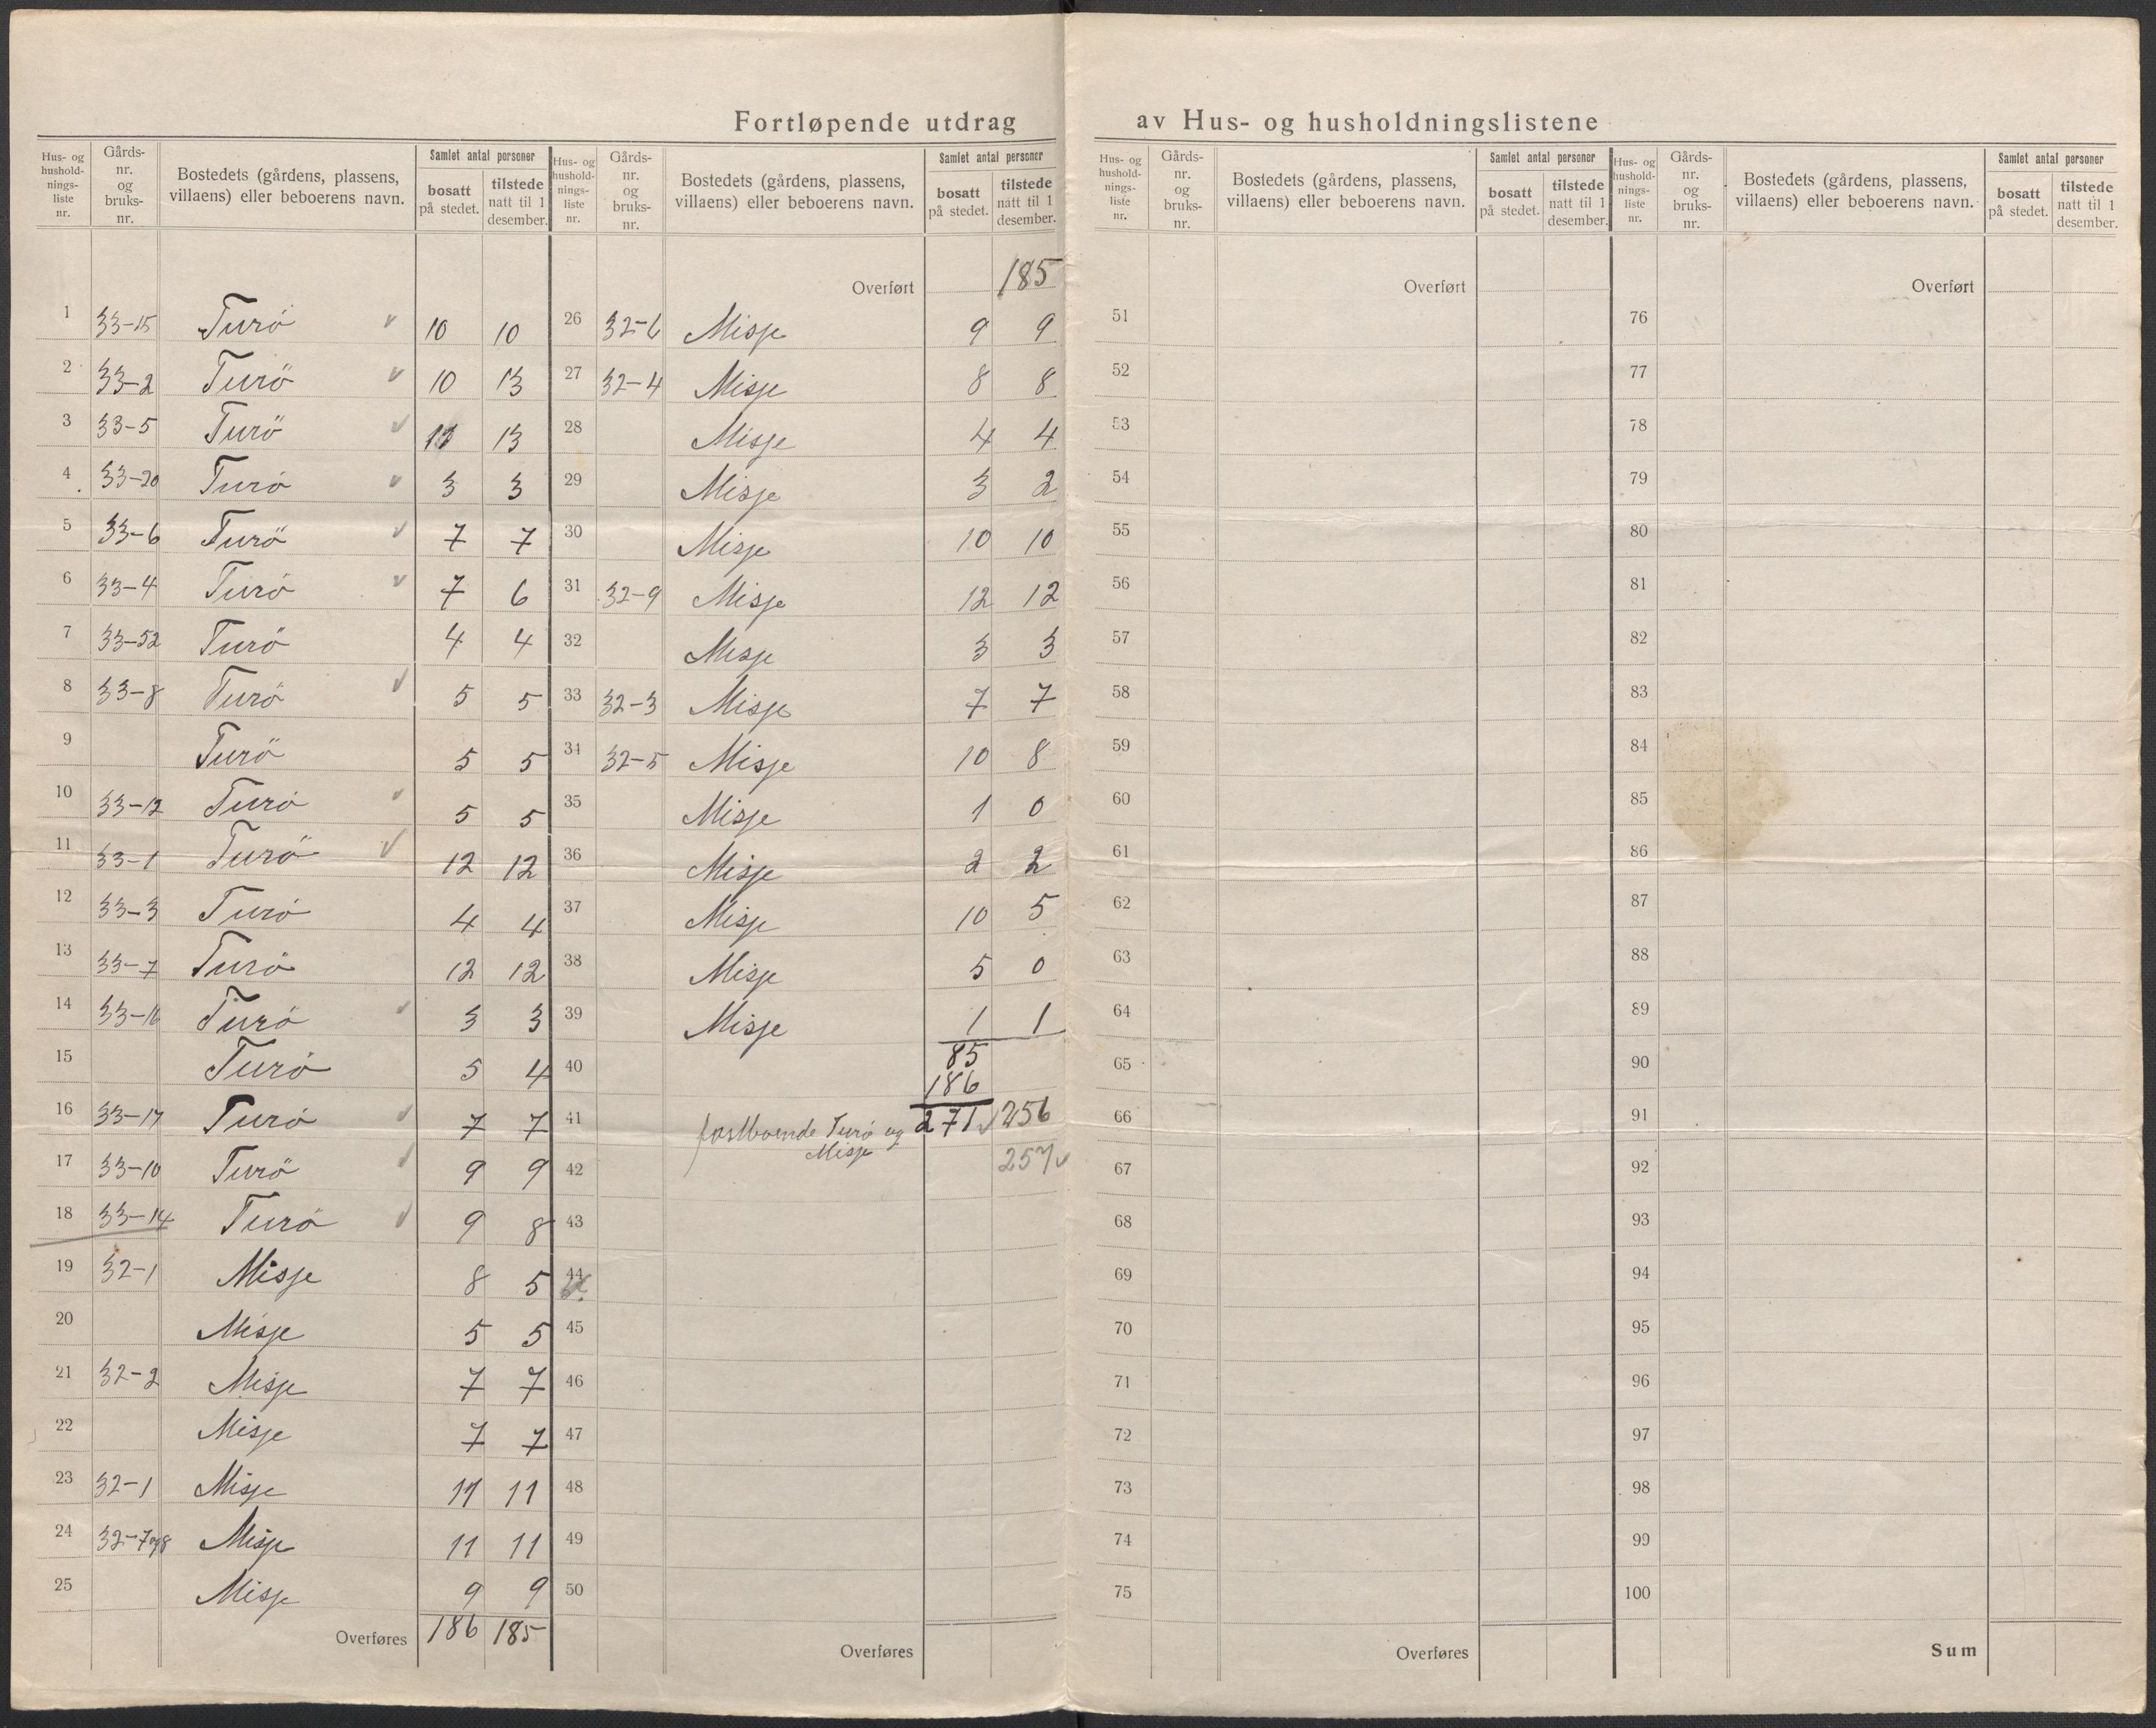 Fortløpende utdrag av Hus- og husholdningslistene
Hus- og husholdnings-liste nr. Gårds-nr. og bruks-nr. Bostedets (gårdens, plassens, villaens) eller beboerens navn. Samlet antal personer bosatt på stedet. tilstede natt til 1 desember.
1 33-15 Turö v 10 10
2 33-2 Turö v 10 13
3 33-5 Turö v 13 13
4 33-20 Turö v 3 3
5 33-6 Turö v 7 7
6 33-4 Turö v 7 6
7 33-52 Turö 4 4
8 33-8 Turö v 5 5
9 Turö 5 5
10 33-12 Turö v 5 5
11 33-1 Turö v 12 12
12 33-3 Turö 4 4
13 33-7 Turö 12 12
14 33-16 Turö v 3 3
15 Turö 5 4
16 33-17 Turö v 7 7
17 33-10 Turö v 9 9
18 33-14 Turö v 9 8
19 32-1 Misje 8 5
20 Misje 5 5
21 32-2 Misje 7 7
22 Misje 7 7
23 32-1 Misje 11 11
24 32-7og8 Misje 11 11
25 Misje 9 9
Overføres 186 185
Hus- og husholdnings-liste nr. Gårds-nr. og bruks-nr. Bostedets (gårdens, plassens, villaens) eller beboerens navn. Samlet antal personer bosatt på stedet. tilstede natt til 1 desember.
Overført 185
26 32-6 Misje 9 9
27 32-4 Misje 8 8
28 Misje 4 4
29 Misje 3 2
30 Misje 10 10
31 32-9 Misje 12 12
32 Misje 3 3
33 32-3 Misje 7 7
34 32-5 Misje 10 8
35 Misje 1 0
36 Misje 2 2
37 Misje 10 5
38 Misje 5 0
39 Misje 1 1
40 85
186
41 fastboende Turö og Misje 271 v 256
42 257 v
43
44
45
46
47
48
49
50
Overføres
Hus- og husholdnings-liste nr. Gårds-nr. og bruks-nr. Bostedets (gårdens, plassens, villaens) eller beboerens navn. Samlet antal personer bosatt på stedet. tilstede natt til 1 desember.
Overført
51
52
53
54
55
56
57
58
59
60
61
62
63
64
65
66
67
68
69
70
71
72
73
74
75
Overføres
Hus- og husholdnings-liste nr. Gårds-nr. og bruks-nr. Bostedets (gårdens, plassens, villaens) eller beboerens navn. Samlet antal personer bosatt på stedet. tilstede natt til 1 desember.
Overført
76
77
78
79
80
81
82
83
84
85
86
87
88
89
90
91
92
93
94
95
96
97
98
99
100
Sum